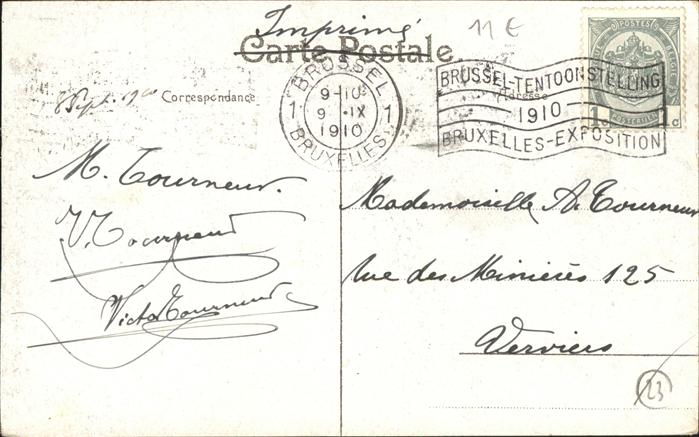 Imprimé
11 €
Carte Postale.
Correspondance
Adresse
BRUSSEL
9-10
9 IX
1910
1 1
BRUXELLES
BRUSSEL-TENTOONSTELLING
1910
BRUXELLES-EXPOSITION
POSTES
1c 1c
8 Sept. 1910
M. Tourneur.
V. Tourneur
Victor Tourneur
Mademoiselle A. Tourneur
rue des Minières 125
Verviers
23